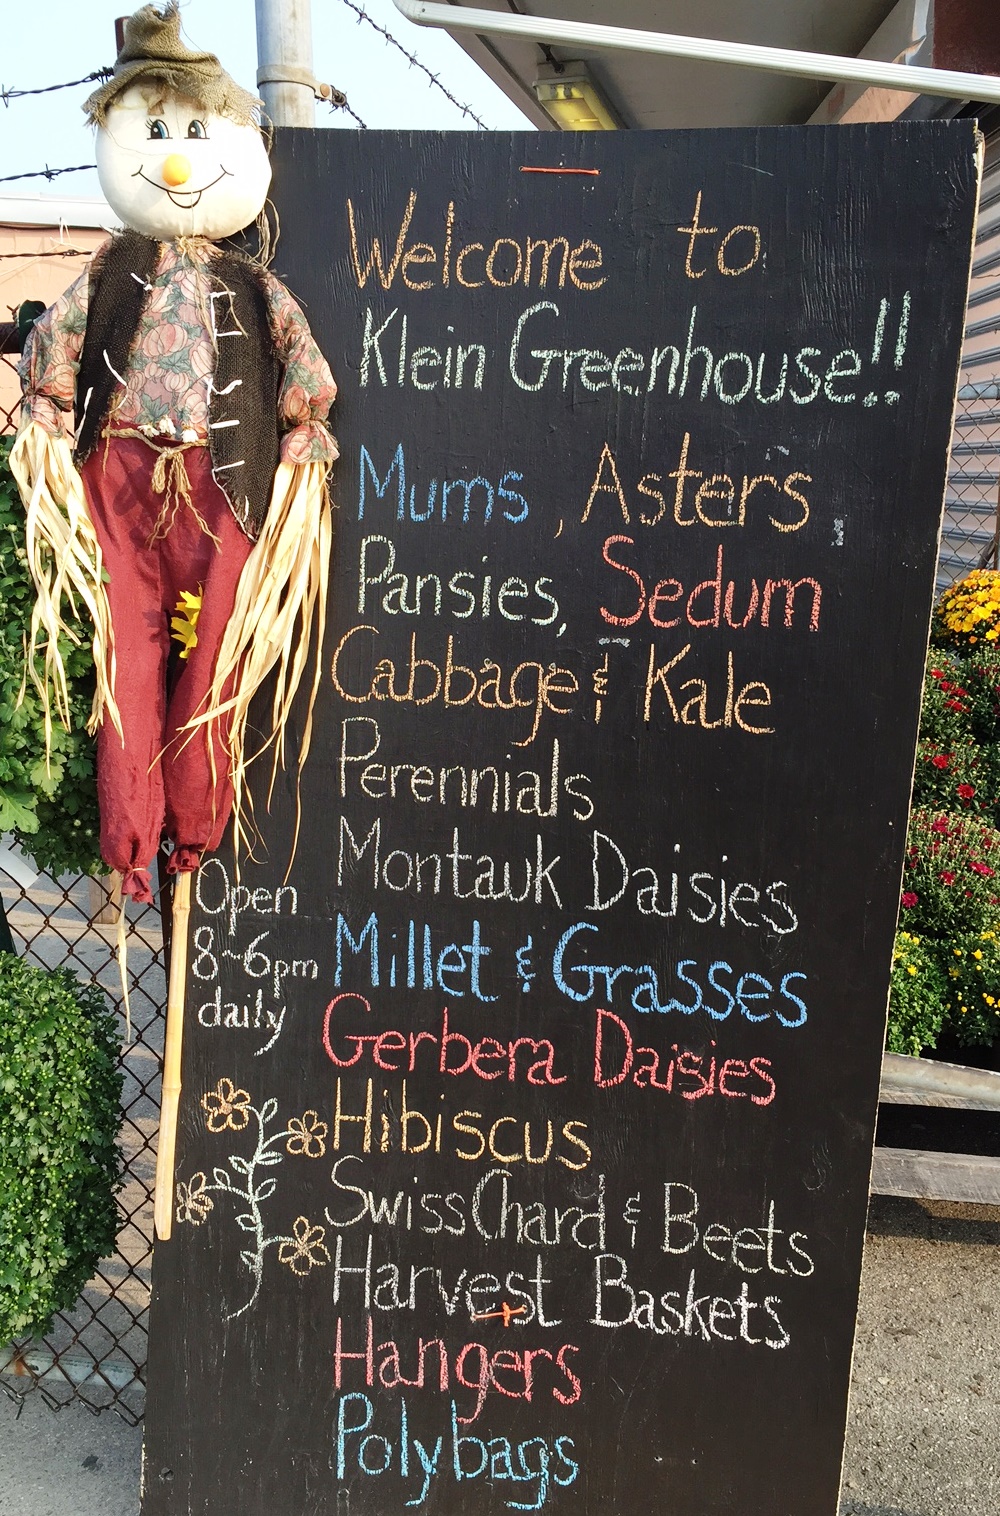 Welcome to
Klein Greenhouse!!
Mums, Asters,
Pansies, Sedum
Cabbage & Kale
Perennials
Montauk Daisies
Millet & Grasses
Gerbera Daisies
Hibiscus
Swiss Chard & Beets
Harvest Baskets
Hangers
Polybags
Open
8~6pm
daily